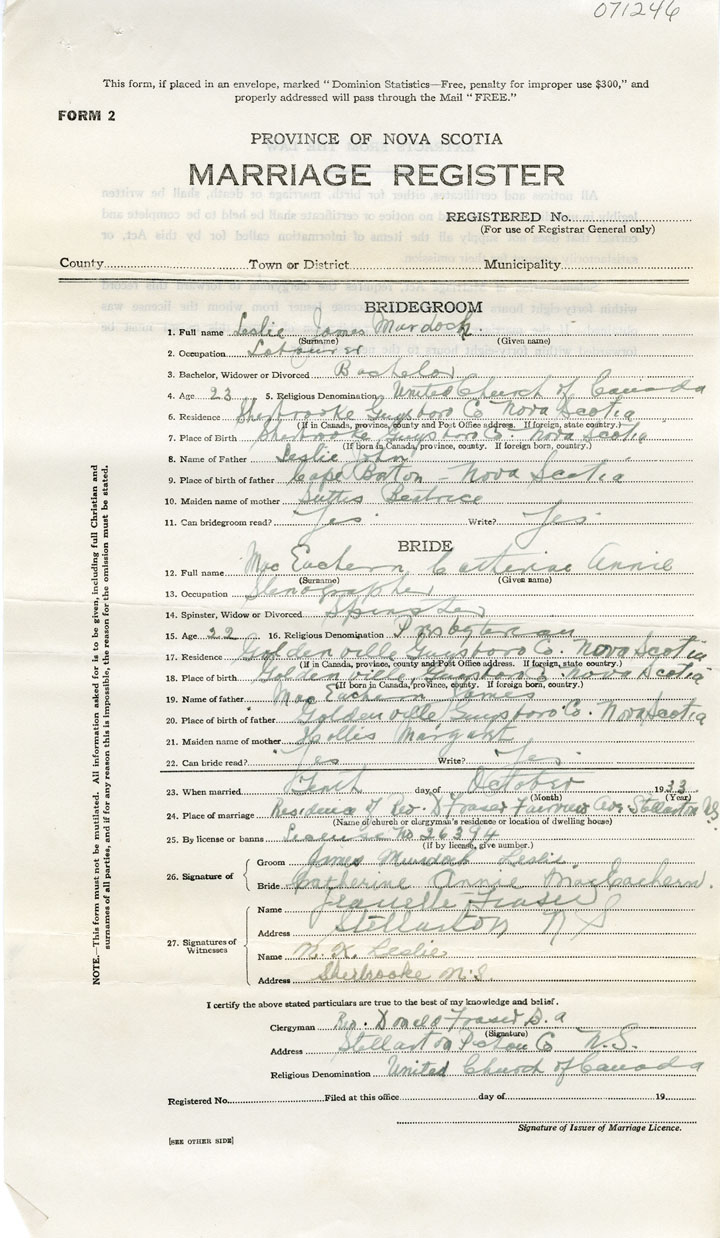 071246
This form, if placed in an envelope, marked "Dominion Statistics—Free, penalty for improper use $300," and
properly addressed will pass through the Mail "FREE."
FORM 2
PROVINCE OF NOVA SCOTIA
MARRIAGE REGISTER
REGISTERED No.
(For use of Registrar General only)
County Town or District Municipality
BRIDEGROOM
1. Full name Leslie James Murdock.
(Surname) (Given name)
2. Occupation Labourer
3. Bachelor, Widower or Divorced Bachelor
4. Age 23 5. Religious Denomination United Church of Canada
6. Residence Sherbrooke Guysboro Co Nova Scotia
(If in Canada, province, county and Post Office address. If foreign, state country.)
7. Place of Birth Sherbrooke Guysboro Co. Nova Scotia
(If born in Canada, province, county. If foreign born, country.)
8. Name of Father Leslie John
9. Place of birth of father Cape Breton - Nova Scotia
10. Maiden name of mother Beatrice
11. Can bridegroom read? Yes Write? Yes
BRIDE
12. Full name Mac Eachern Catherine Annie
(Surname) (Given name)
13. Occupation Stenographer
14. Spinster, Widow or Divorced Spinster
15. Age 22 16. Religious Denomination Presbyterian
17. Residence Goldenville Guysboro Co. Nova Scotia
(If in Canada, province, county and Post Office address. If foreign, state country.)
18. Place of birth Goldenville, Guysboro Co Nova Scotia
(If born in Canada, province, county. If foreign born, country.)
19. Name of father Mac Eachern James
20. Place of birth of father Goldenville Guysboro Co. Nova Scotia
21. Maiden name of mother Hollis Margaret
22. Can bride read? Yes Write? Yes
23. When married Tenth day of October 1933
(Month) (Year)
24. Place of marriage Residence of Rev. D Fraser Fairview Ave Stellarton NS.
(Name of church or clergyman's residence or location of dwelling house)
25. By license or banns License No. 26394
(If by license, give number.)
26. Signature of Groom James Murdock Leslie.
Bride Catherine Annie MacEachern.
27. Signatures of Witnesses Name Jeanette Fraser
Address Stellarton N S
Name Leslie
Address Sherbrooke N.S.
I certify the above stated particulars are true to the best of my knowledge and belief.
Clergyman Rev. Donald Fraser B.A
(Signature)
Address Stellarton Pictou Co N.S.
Religious Denomination United Church of Canada
Registered No. Filed at this office day of 19
Signature of Issuer of Marriage Licence.
[SEE OTHER SIDE]
NOTE.—This form must not be mutilated. All information asked for is to be given, including full Christian and
surnames of all parties, and if for any reason this is impossible, the reason for the omission must be stated.